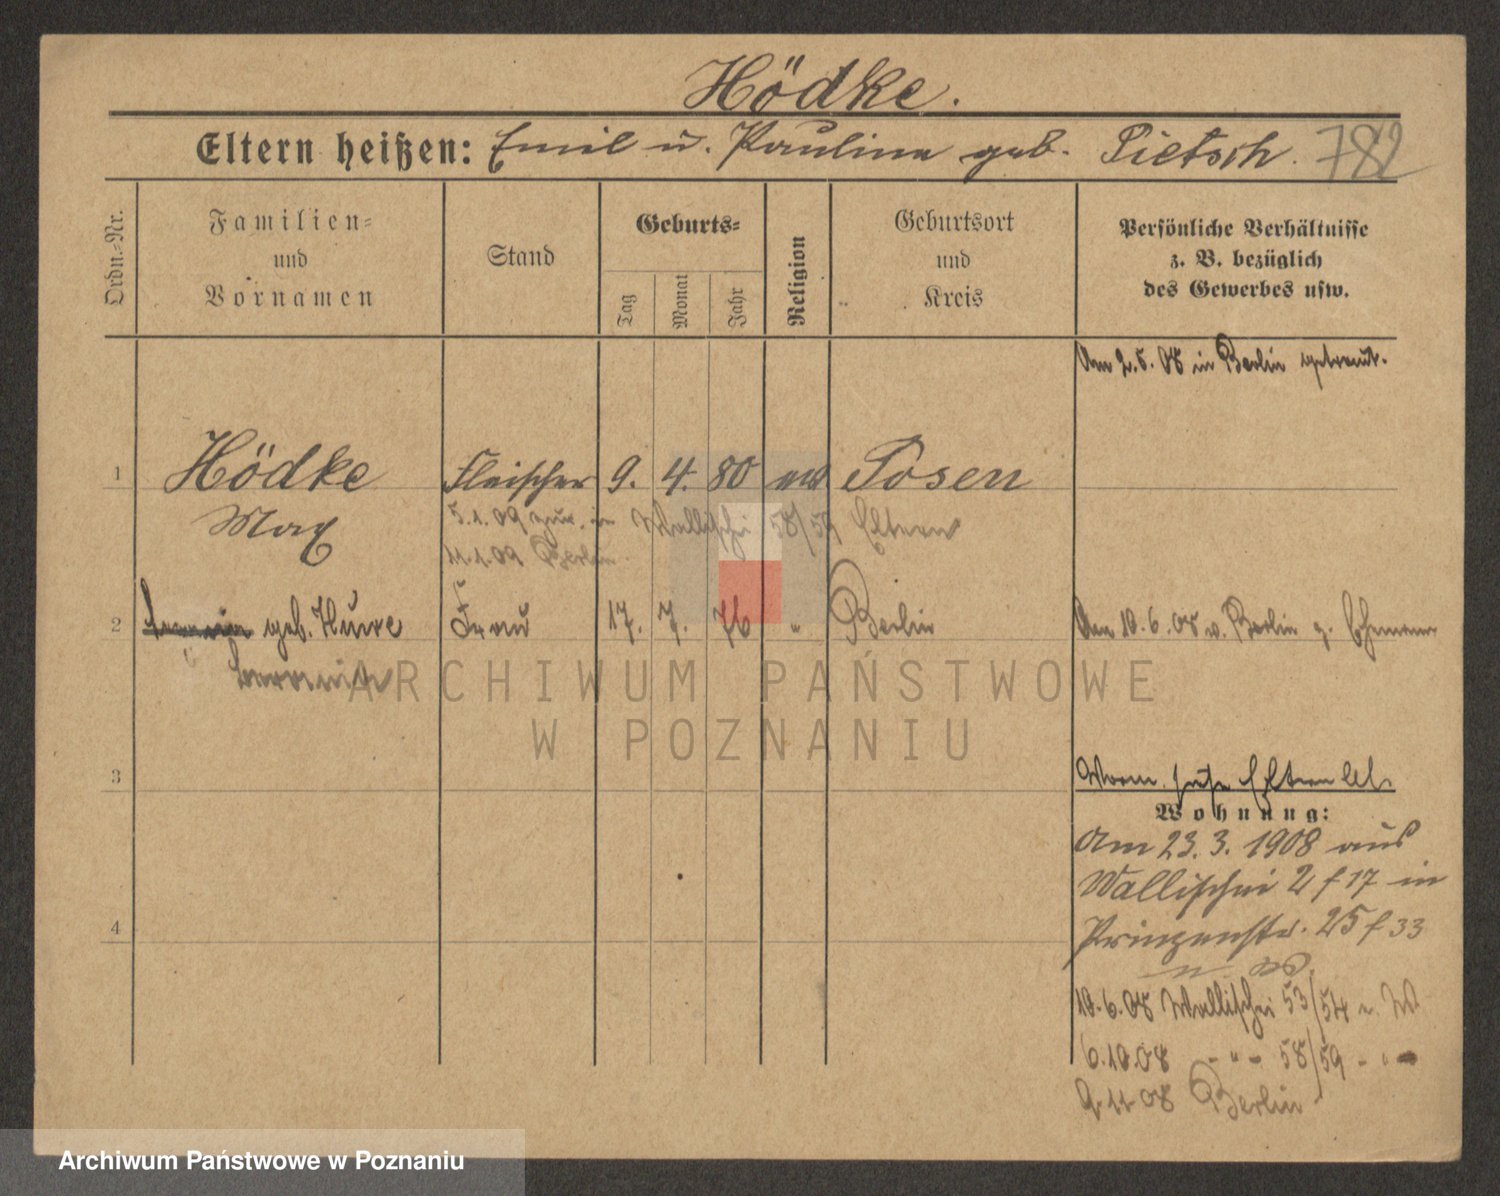 Hödke.
Eltern heißen: Emil u. Pauline geb. Pietsch. 782
Ordn.-Nr.
Familien-
und
Vornamen
Stand
Geburts-
Tag
Monat
Jahr
Religion
Geburtsort
und
Kreis
Persönliche Verhältnisse
z. B. bezüglich
des Gewerbes usw.
Am 2.5.08 in Berlin getraut.
1 Hödke Fleischer 9. 4. 80 Posen
Max
5.1.09 zur. in Wallischei 58/59 Eltern
11.1.09 Berlin.
2 geb. Frau 17. 7. 76 " Berlin
Am 10.6.08 v. Berlin z. Ehemann
ARCHIWUM PAŃSTWOWE
W POZNANIU
3
Vorm. siehe Eltern
Wohnung:
Am 23.3.1908 aus
Wallischei 2 f 17 in
4
Prinzenstr. 25 f 33
10.6.08 Wallischei 53/54
6.10.08 - " - 58/59
9.11.08 Berlin
Archiwum Państwowe w Poznaniu